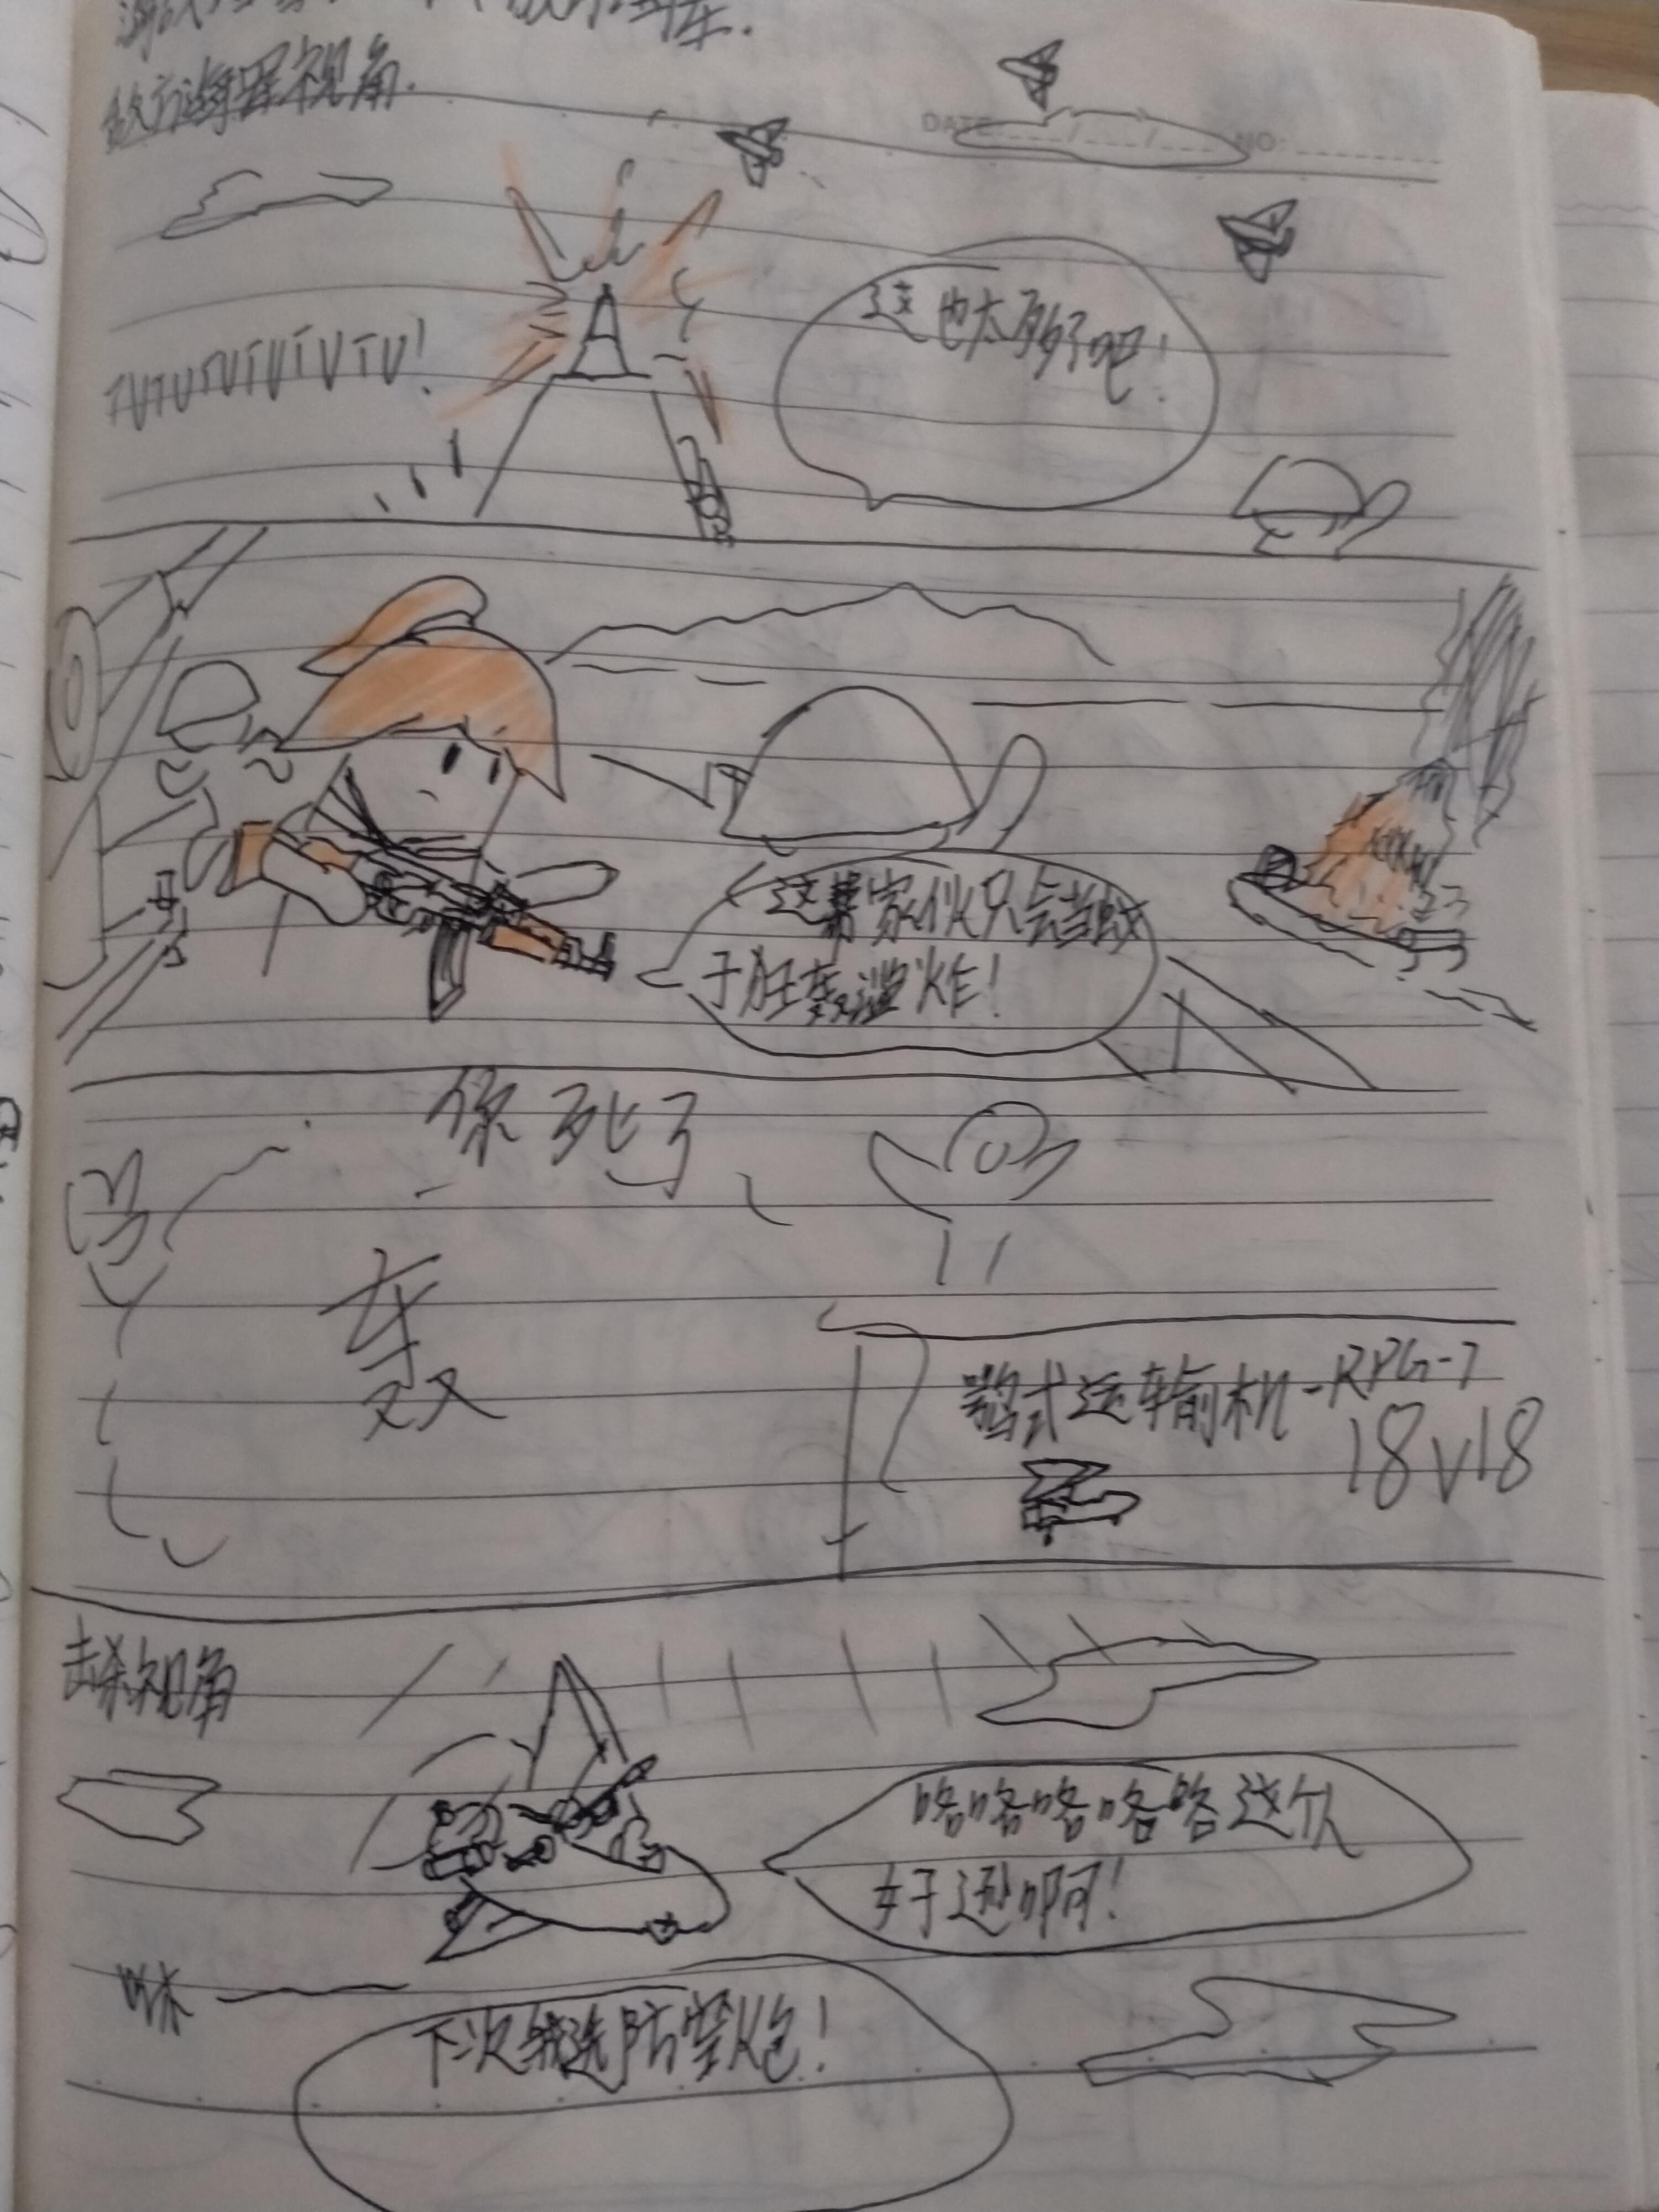 敌方海军视角.
DATE / / NO
TUTUTUTUTUTU!
这也太多了吧!
这帮家伙只会当战
于狂轰滥炸!
你死了
轰
鹗式运输机-RPG-7
18V18
击杀视角
咯咯咯咯咯这个人
好逊啊!
咻
下次我选防空炮!